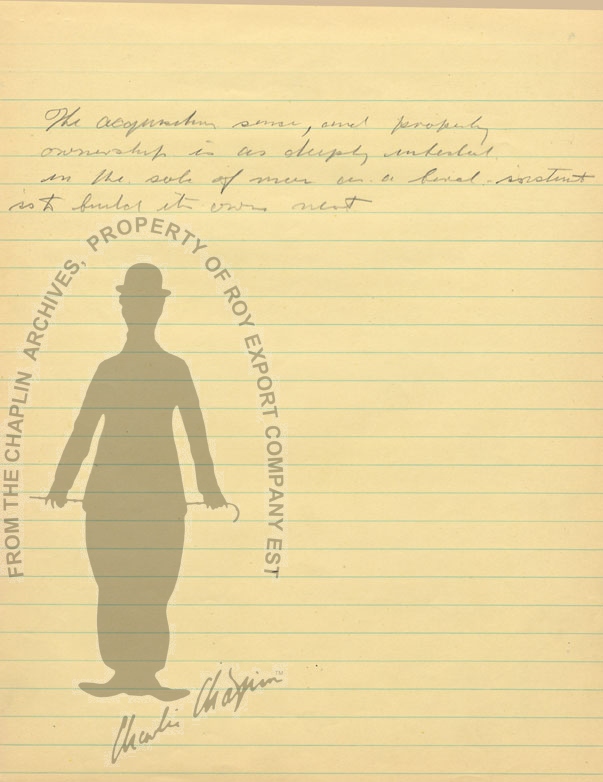 The acquisitive sense, and property
ownership is as deeply
in the sole of man as a bird
is to build its own nest
FROM THE CHAPLIN ARCHIVES, PROPERTY OF ROY EXPORT COMPANY EST
Charlie Chaplin ™